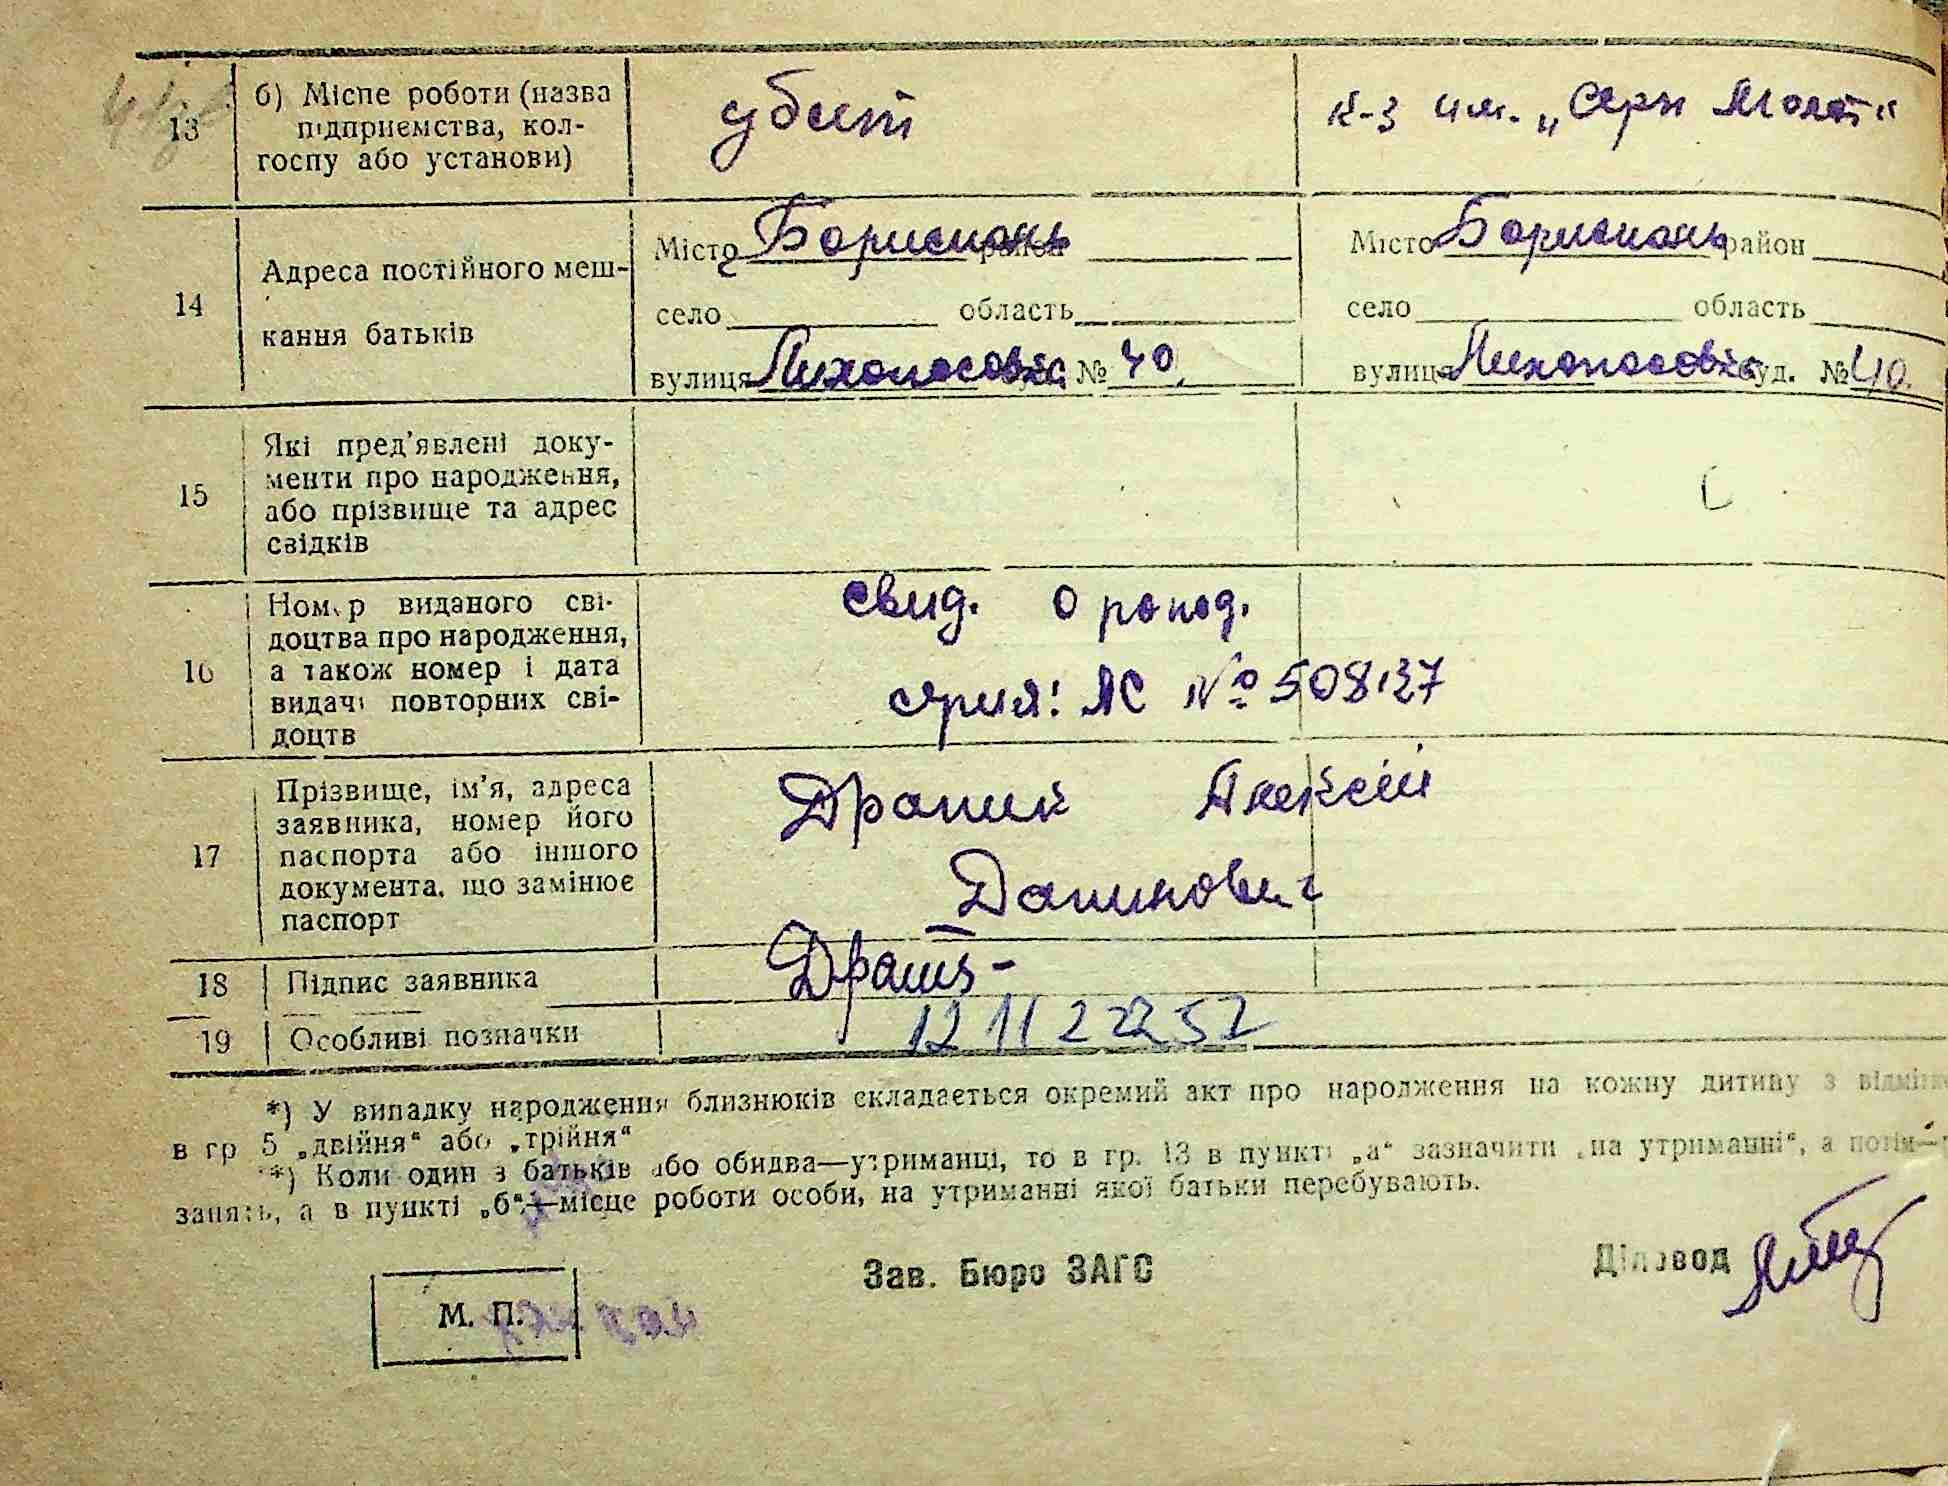 13 б) Місце роботи (назва підприємства, колгоспу або установи) убит к-з им. „Серп Молот“
14 Адреса постійного меш-
кання батьків
Місто Бориспонь район
село область
вулиця № 40.
Місто Бориспонь район
село область
вулиця буд. № 40.
15 Які пред'явлені доку-
менти про народження,
або прізвище та адрес
свідків
16 Номер виданого сві-
доцтва про народження,
а також номер і дата
видачі повторних сві-
доцтв
свид. о рожд.
серия: ЯС № 508137
17 Прізвище, ім'я, адреса
заявника, номер його
паспорта або іншого
документа, що замінює
паспорт
Драпик Алексей
Данилович
18 Підпис заявника
19 Особливі позначки 12 11 2 22 52
*) У випадку народження близнюків складається окремий акт про народження на кожну дитину з
в гр 5 „двійня“ або „трійня“
**) Коли один з батьків або обидва—утриманці, то в гр. 13 в пункті „а“ зазначити „на утриманні“, а потім—
занять, а в пункті „б“—місце роботи особи, на утриманні якої батьки перебувають.
Зав. Бюро ЗАГС Діловод
М. П.